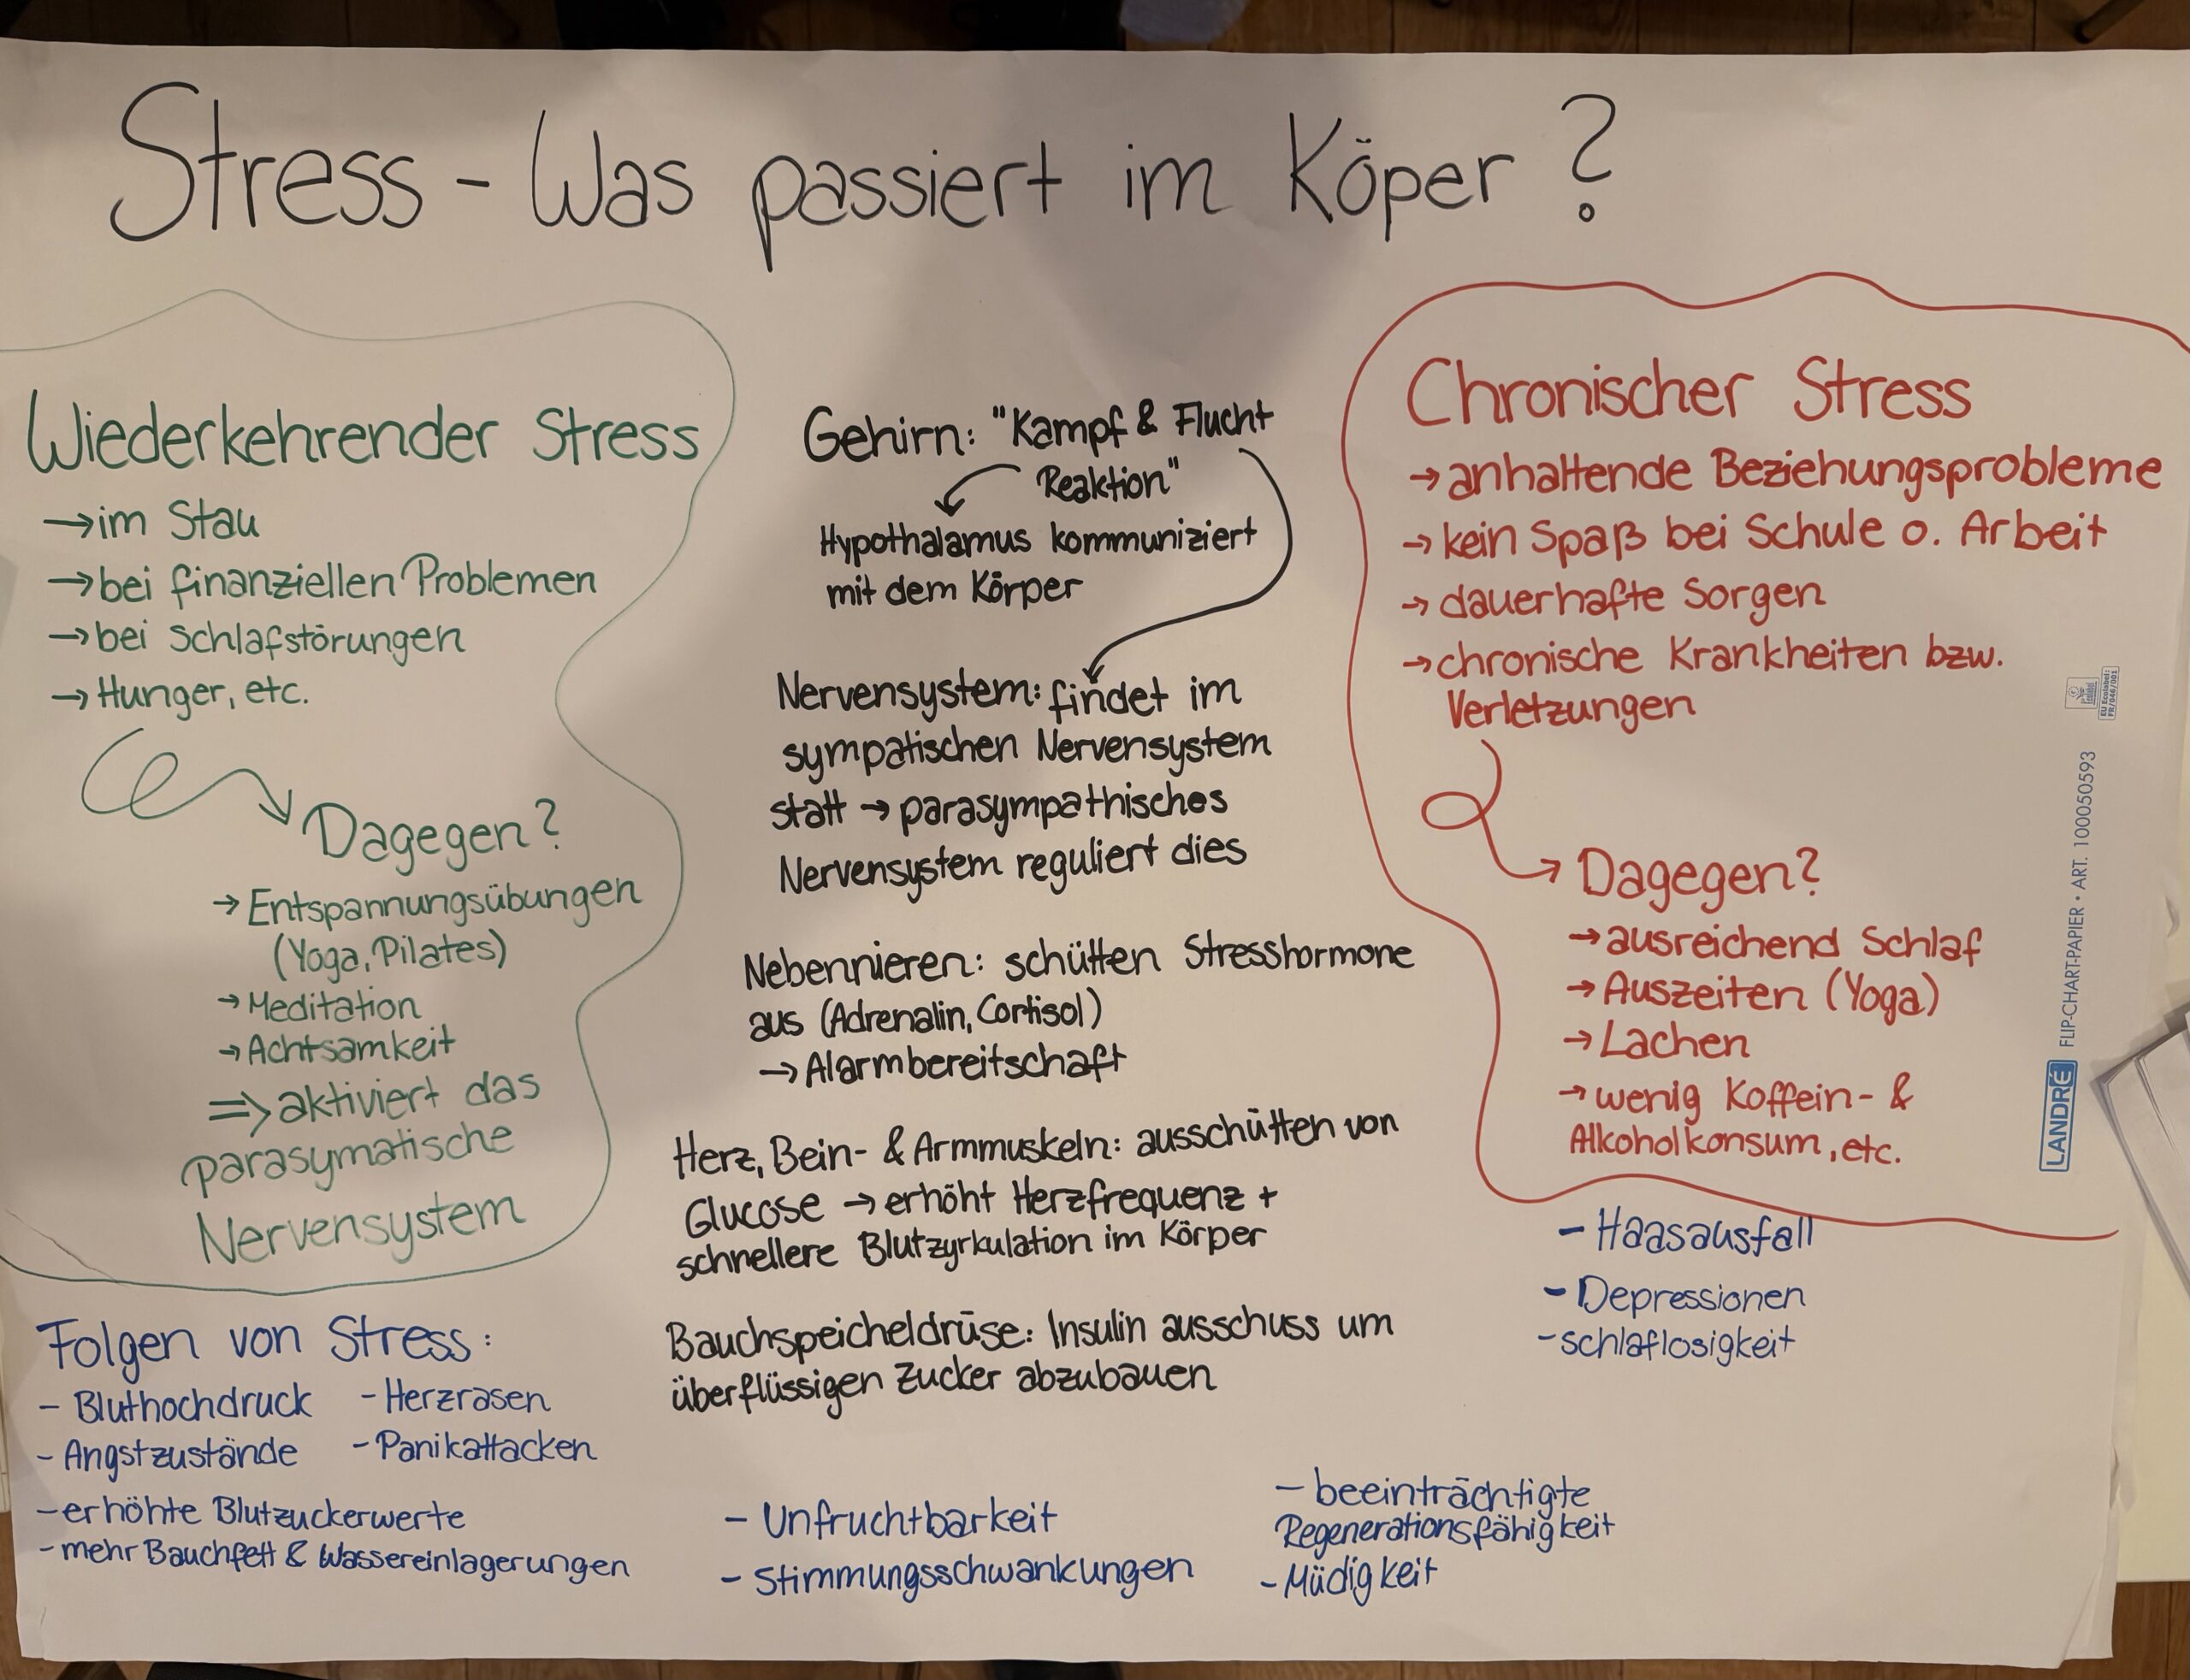 Stress - Was passiert im Köper ?
Wiederkehrender Stress
→ im Stau
→ bei finanziellen Problemen
→ bei Schlafstörungen
→ Hunger, etc.
Dagegen?
→ Entspannungsübungen
(Yoga, Pilates)
→ Meditation
→ Achtsamkeit
⇒ aktiviert das
parasymatische
Nervensystem
Gehirn: "Kampf & Flucht
Reaktion"
Hypothalamus kommuniziert
mit dem Körper
Nervensystem: findet im
sympatischen Nervensystem
statt → parasympathisches
Nervensystem reguliert dies
Nebennieren: schütten Stresshormone
aus (Adrenalin, Cortisol)
→ Alarmbereitschaft
Herz, Bein- & Armmuskeln: ausschütten von
Glucose → erhöht Herzfrequenz +
schnellere Blutzyrkulation im Körper
Bauchspeicheldrüse: Insulin ausschuss um
überflüssigen Zucker abzubauen
Chronischer Stress
→ anhaltende Beziehungsprobleme
→ kein Spaß bei Schule o. Arbeit
→ dauerhafte Sorgen
→ chronische Krankheiten bzw.
Verletzungen
Dagegen?
→ ausreichend Schlaf
→ Auszeiten (Yoga)
→ Lachen
→ wenig Koffein- &
Alkoholkonsum, etc.
Folgen von Stress:
- Bluthochdruck
- Herzrasen
- Angstzustände
- Panikattacken
- erhöhte Blutzuckerwerte
- mehr Bauchfett & Wassereinlagerungen
- Unfruchtbarkeit
- Stimmungsschwankungen
- beeinträchtigte
Regenerationsfähigkeit
- Müdigkeit
- Haasausfall
- Depressionen
- schlaflosigkeit
LANDRÉ FLIP-CHART-PAPIER • ART. 100050593
EU Ecolabel:
FR/046/001